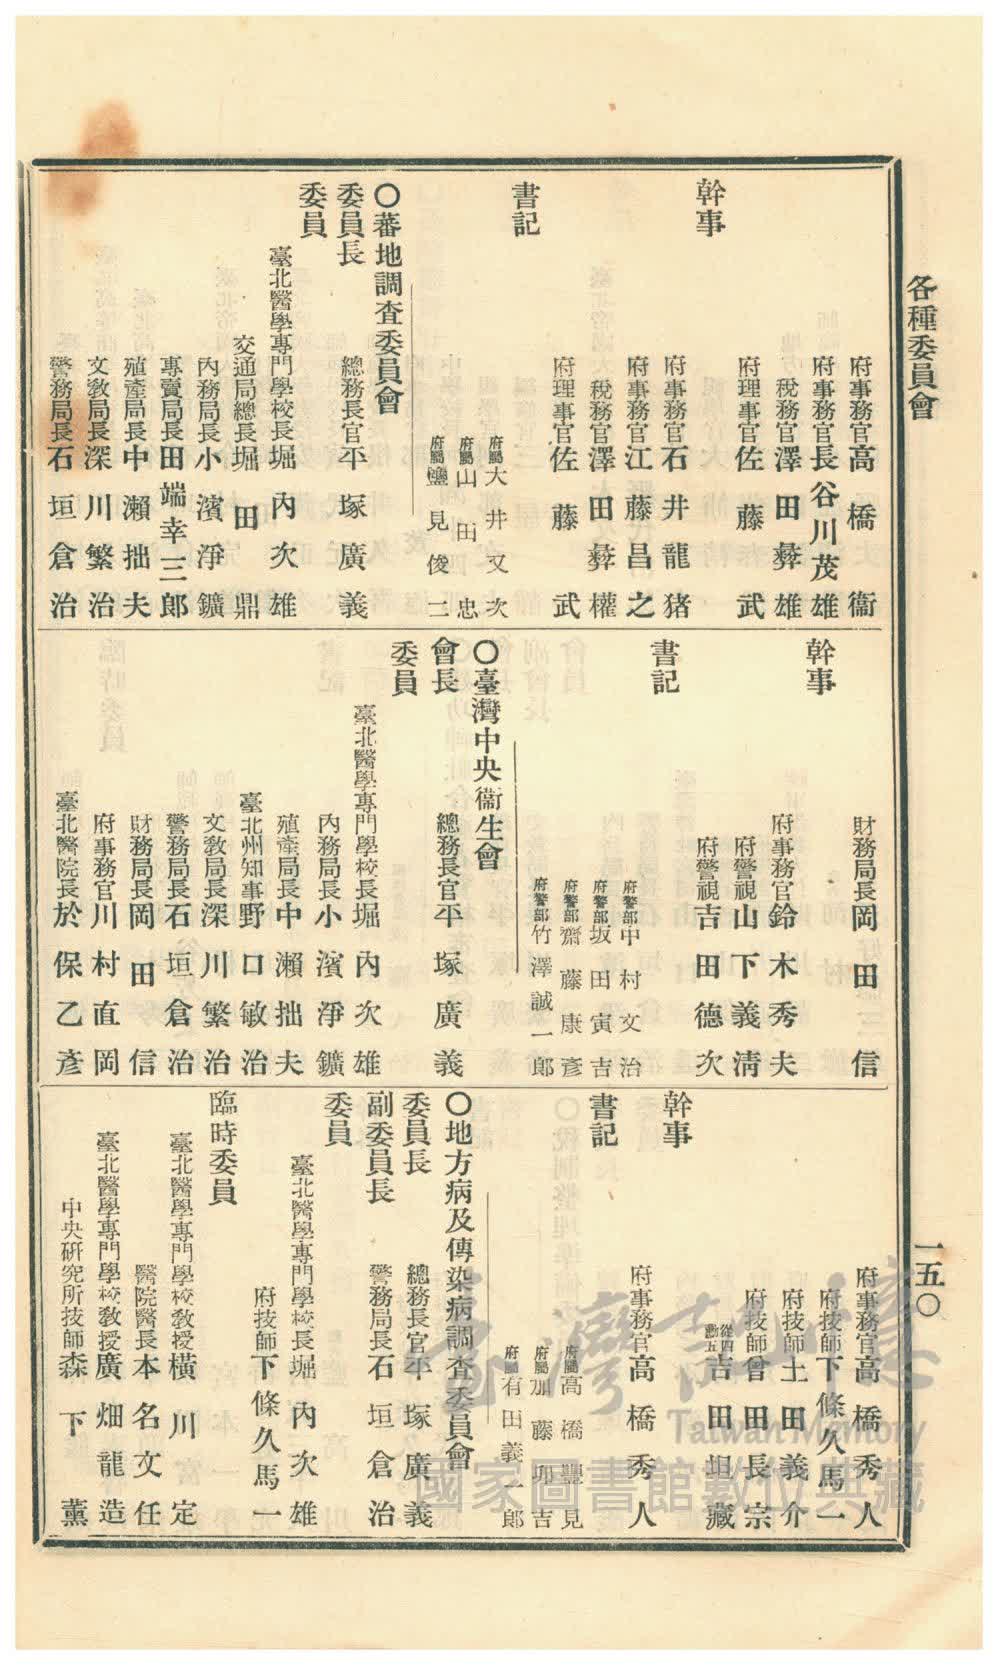 各種委員會
一五〇
府事務官高橋衞
府事務官長谷川茂雄
稅務官澤田彜雄
府理事官佐藤武
幹事
府事務官石井龍猪
府事務官江藤昌之
稅務官澤田彜權
府理事官佐藤武
書記
府屬大井又次
府屬山田忠
府屬鹽見俊二
〇蕃地調査委員會
委員長
總務長官平塚廣義
委員
臺北醫學專門學校長堀內次雄
交通局總長堀田鼎
內務局長小濱淨鑛
專賣局長田端幸三郎
殖產局長中瀨拙夫
文敎局長深川繁治
警務局長石垣倉治
財務局長岡田信
幹事
府事務官鈴木秀夫
府警視山下義淸
府警視吉田德次
書記
府警部中村文治
府警部坂田寅吉
府警部齋藤康彥
府警部竹澤誠一郞
〇臺灣中央衞生會
會長
總務長官平塚廣義
委員
臺北醫學專門學校長堀內次雄
內務局長小濱淨鑛
殖產局長中瀨拙夫
臺北州知事野口敏治
文敎局長深川繁治
警務局長石垣倉治
財務局長岡田信
府事務官川村直岡
臺北醫院長於保乙彥
府事務官高橋秀人
府技師下條久馬一
府技師土田義介
府技師曾田長宗
從四勳五吉田坦藏
幹事
府事務官高橋秀人
書記
府屬高橋豐見
府屬加藤卯吉
府屬有田義一郞
〇地方病及傳染病調査委員會
委員長
總務長官平塚廣義
副委員長
警務局長石垣倉治
委員
臺北醫學專門學校長堀內次雄
府技師下條久馬一
臨時委員
臺北醫學專門學校敎授橫川定
醫院醫長本名文任
臺北醫學專門學校敎授廣畑龍造
中央硏究所技師森下薰
臺灣記憶
Taiwan Memory
國家圖書館數位典藏